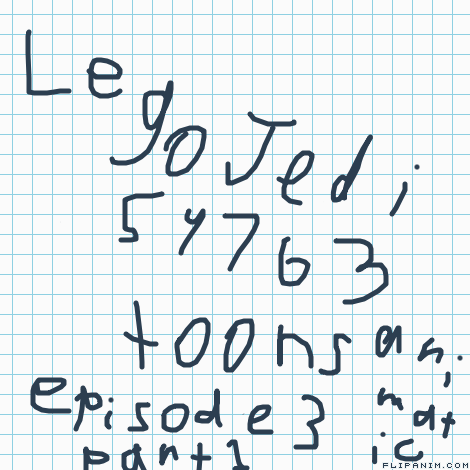 Lego Jedi
54763
toons ani
episode 3 mat
part 1 ic
FLIPANIM.COM